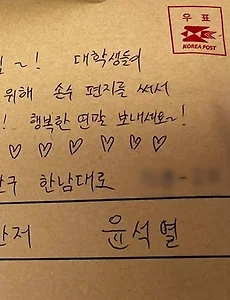 우표
KOREA POST
~! 대학생들이
위해 손수 편지를 써서
! 행복한 연말 보내세요~!
♡ ♡ ♡ ♡ ♡ ♡
한남대로
관저 윤석열